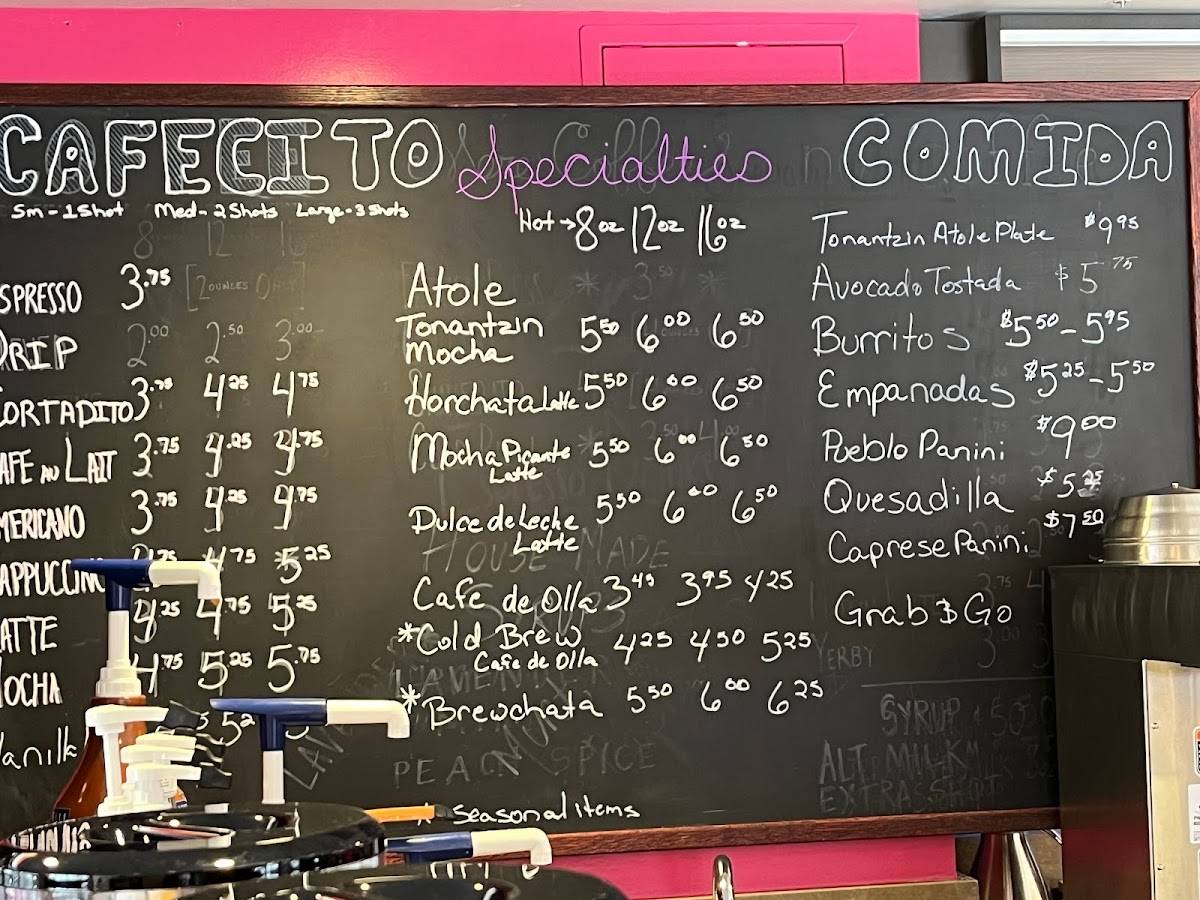 CAFECITO
Sm - 1 Shot Med - 2 Shots Large - 3 Shots
8 12 16
SPRESSO 3.75 [2 OUNCES ONLY]
DRIP 2.00 2.50 3.00
CORTADITO 3.75 4.25 4.75
AFE AU LAIT 3.75 4.25 4.75
MERICANO 3.75 4.25 4.75
APPUCCIN 4.75 5.25
ATTE 4.25 4.75 5.25
MOCHA 4.75 5.25 5.75
Vanilla
Specialties
Hot → 8oz 12oz 16oz
Atole
Tonantzin
Mocha 5.50 6.00 6.50
Horchata Latte 5.50 6.00 6.50
Mocha Picante
Latte 5.50 6.00 6.50
Dulce de Leche
Latte 5.50 6.00 6.50
Cafe de Olla 3.45 3.95 4.25
*Cold Brew
Cafe de Olla 4.25 4.50 5.25
*Brewchata 5.50 6.00 6.25
HOUSE MADE
PEACH SPICE
seasonal items
COMIDA
Tonantzin Atole Plate $9.95
Avocado Tostada $5.75
Burritos $5.50 - 5.95
Empanadas $5.25 - 5.50
Pueblo Panini $9.00
Quesadilla $5.25
Caprese Panini $7.50
Grab & Go
YERBY
SYRUP .50
ALT MILK
EXTRA SHOT